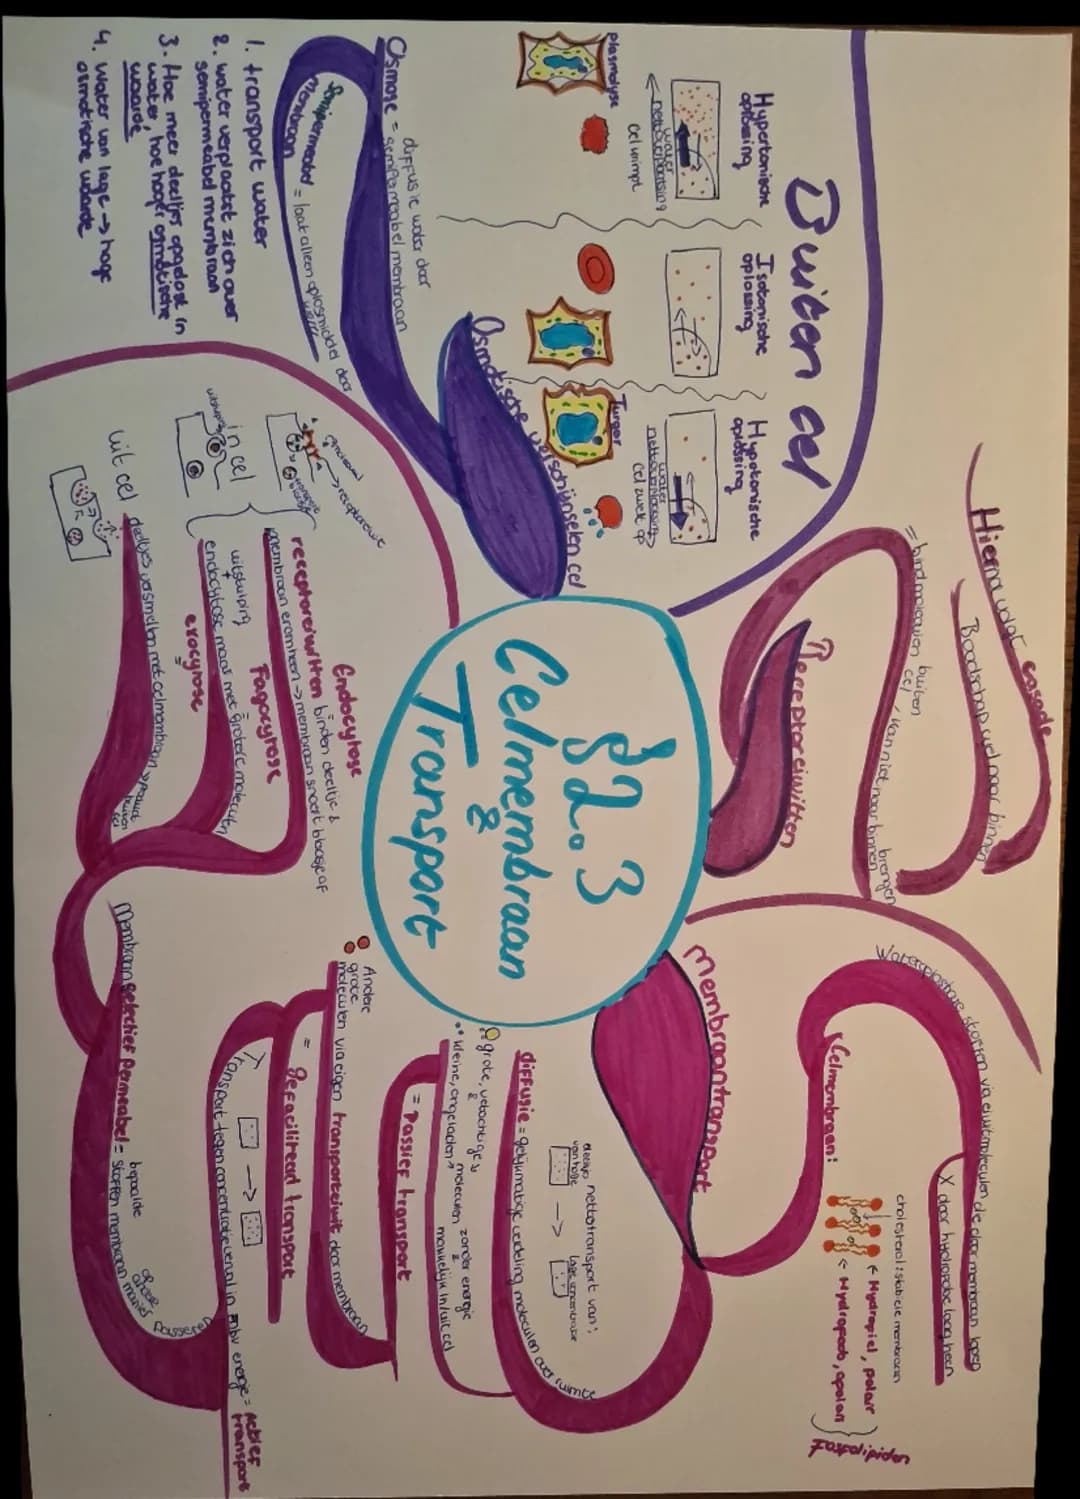 §2.3
Celmembraan
&
Transport
Buiten cel
Hypertonische
oplossing
water
nettoverplaatsing
cel krimpt
plasmolyse
Isotonische
oplossing
Hypotonische
oplossing
water
nettoverplaatsing
cel zwelt op
Turgor
Osmotische verschijnselen cel
Osmose = diffusie water door
semipermeabel membraan
Semipermeabel = laat alleen oplosmiddel door
membraan
1. transport water
2. water verplaatst zich over
semipermeabel membraan
3. Hoe meer deeltjes opgelost in
water, hoe hoger osmotische
waarde
4. Water van lage → hoge
osmotische waarde
Receptoreiwitten
= bind moleculen buiten
cel, kan niet naar binnen
brengen
Boodschap wel naar binnen
Hierna volgt casade
Membraantransport
Celmembraan:
cholesterol: stabiele membraan
← Hydrofiel, polair
← Hydrofoob, apolair
Fosfolipiden
X door hydrofobe laag heen
diffusie = gelijkmatige verdeling moleculen over ruimte
nettotransport van:
→
grote, vetachtige &
kleine, ongeladen
moleculen zonder energie
makkelijk in/uit cel
= Passief transport
Andere
grote
moleculen via eigen transporteiwit door membraan
= gefaciliteerd transport
transport tegen concentratieverval in mbv energie = Actief
transport
Membraan selectief permeabel = bepaalde
stoffen membraan passeren
Endocytose
receptoreiwitten binden deeltje &
membraan eromheen → membraan snoert blaasje af
uitstulping
Fagocytose
endocytose maar met grotere moleculen
exocytose
deeltjes versmelten met celmembraan
buiten
cel
in cel
uit cel
receptoreiwit